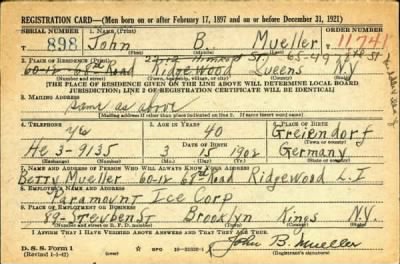 REGISTRATION CARD—(Men born on or after February 17, 1897 and on or before December 31, 1921)
SERIAL NUMBER 1. NAME (Print) ORDER NUMBER
898 John B. Mueller 11741
(First) (Middle) (Last)
65-49
2. PLACE OF RESIDENCE (Print)
60-12 68th Road Ridgewood Queens NY
(Number and street) (Town, township, village, or city) (County) (State)
[THE PLACE OF RESIDENCE GIVEN ON THE LINE ABOVE WILL DETERMINE LOCAL BOARD
JURISDICTION; LINE 2 OF REGISTRATION CERTIFICATE WILL BE IDENTICAL]
3. MAILING ADDRESS
Same as above
[Mailing address if other than place indicated on line 2. If same insert word same]
4. TELEPHONE 5. AGE IN YEARS 6. PLACE OF BIRTH
yes 40 Greiendorf
DATE OF BIRTH (Town or county)
He 3-9135 3 15 1902 Germany
(Exchange) (Number) (Mo.) (Day) (Yr.) (State or country)
7. NAME AND ADDRESS OF PERSON WHO WILL ALWAYS KNOW YOUR ADDRESS
Betty Mueller 60-12 68th Road Ridgewood L.I.
8. EMPLOYER'S NAME AND ADDRESS
Paramount Ice Corp
9. PLACE OF EMPLOYMENT OR BUSINESS
89-Steuben St Brooklyn Kings N.Y.
(Number and street or R. F. D. number) (Town) (County) (State)
I AFFIRM THAT I HAVE VERIFIED ABOVE ANSWERS AND THAT THEY ARE TRUE.
D. S. S. Form 1
(Revised 1-1-42) GPO
John B. Mueller